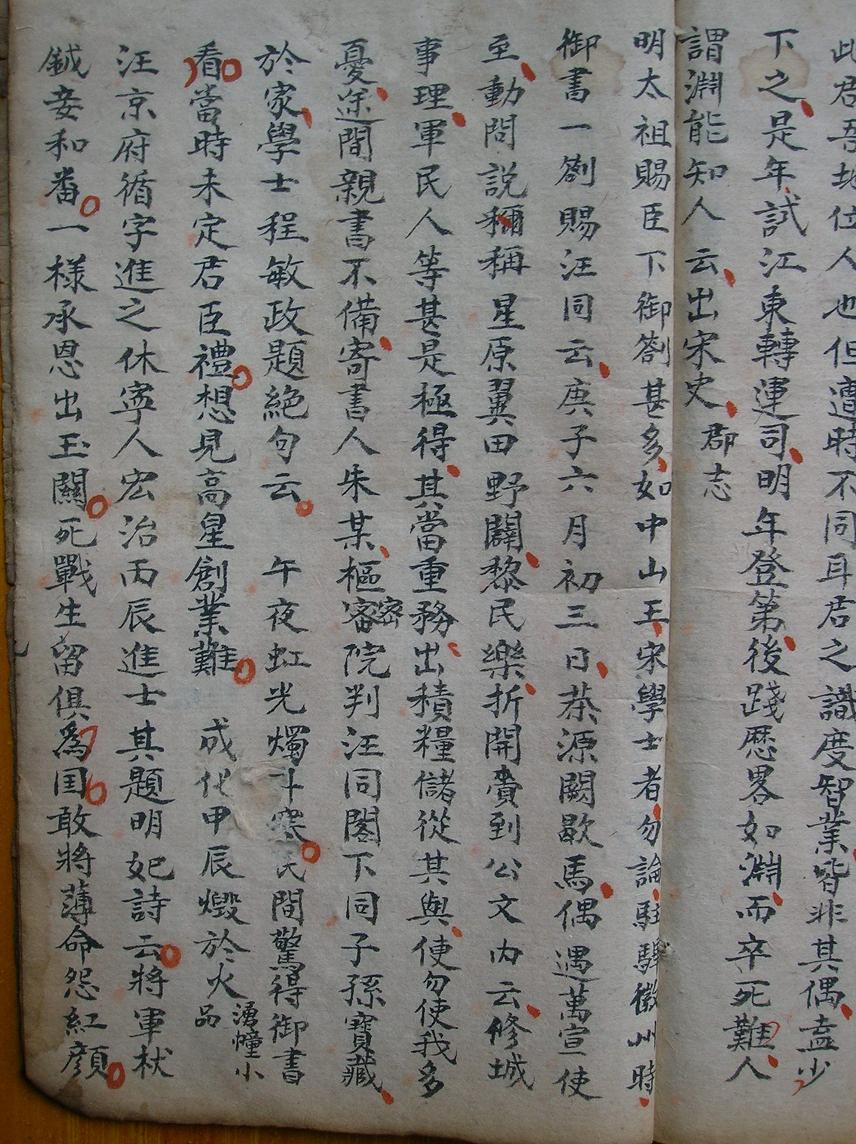 此君吾地位人也但遭時不同耳君之識度智業皆非其偶盍少
下之是年試江東轉運司明年登第後踐歷畧如淵而卒死難人
謂淵能知人云出宋史郡志
明太祖賜臣下御劄甚多如中山王宋學士者勿論駐驆徽州時
御書一劄賜汪同云庚子六月初三日茶源闕歇馬偶遇萬宣使
至動問說稱星原翼田野闢黎民樂折開賫到公文內云修城
事理軍民人等甚是極得其當重務出積糧儲從其與使勿使我多
憂途間親書不備寄書人朱某樞密院判汪同閣下同子孫寶藏
於家學士程敏政題絕句云 午夜虹光燭斗寒民間驚得御書
看當時未定君臣禮想見高星創業難 成化甲辰燬於火湧幢小品
汪京府循字進之休寧人宏治丙辰進士其題明妃詩云將軍杖
鉞妾和番一樣承恩出玉關死戰生留俱為国敢將薄命怨紅顏